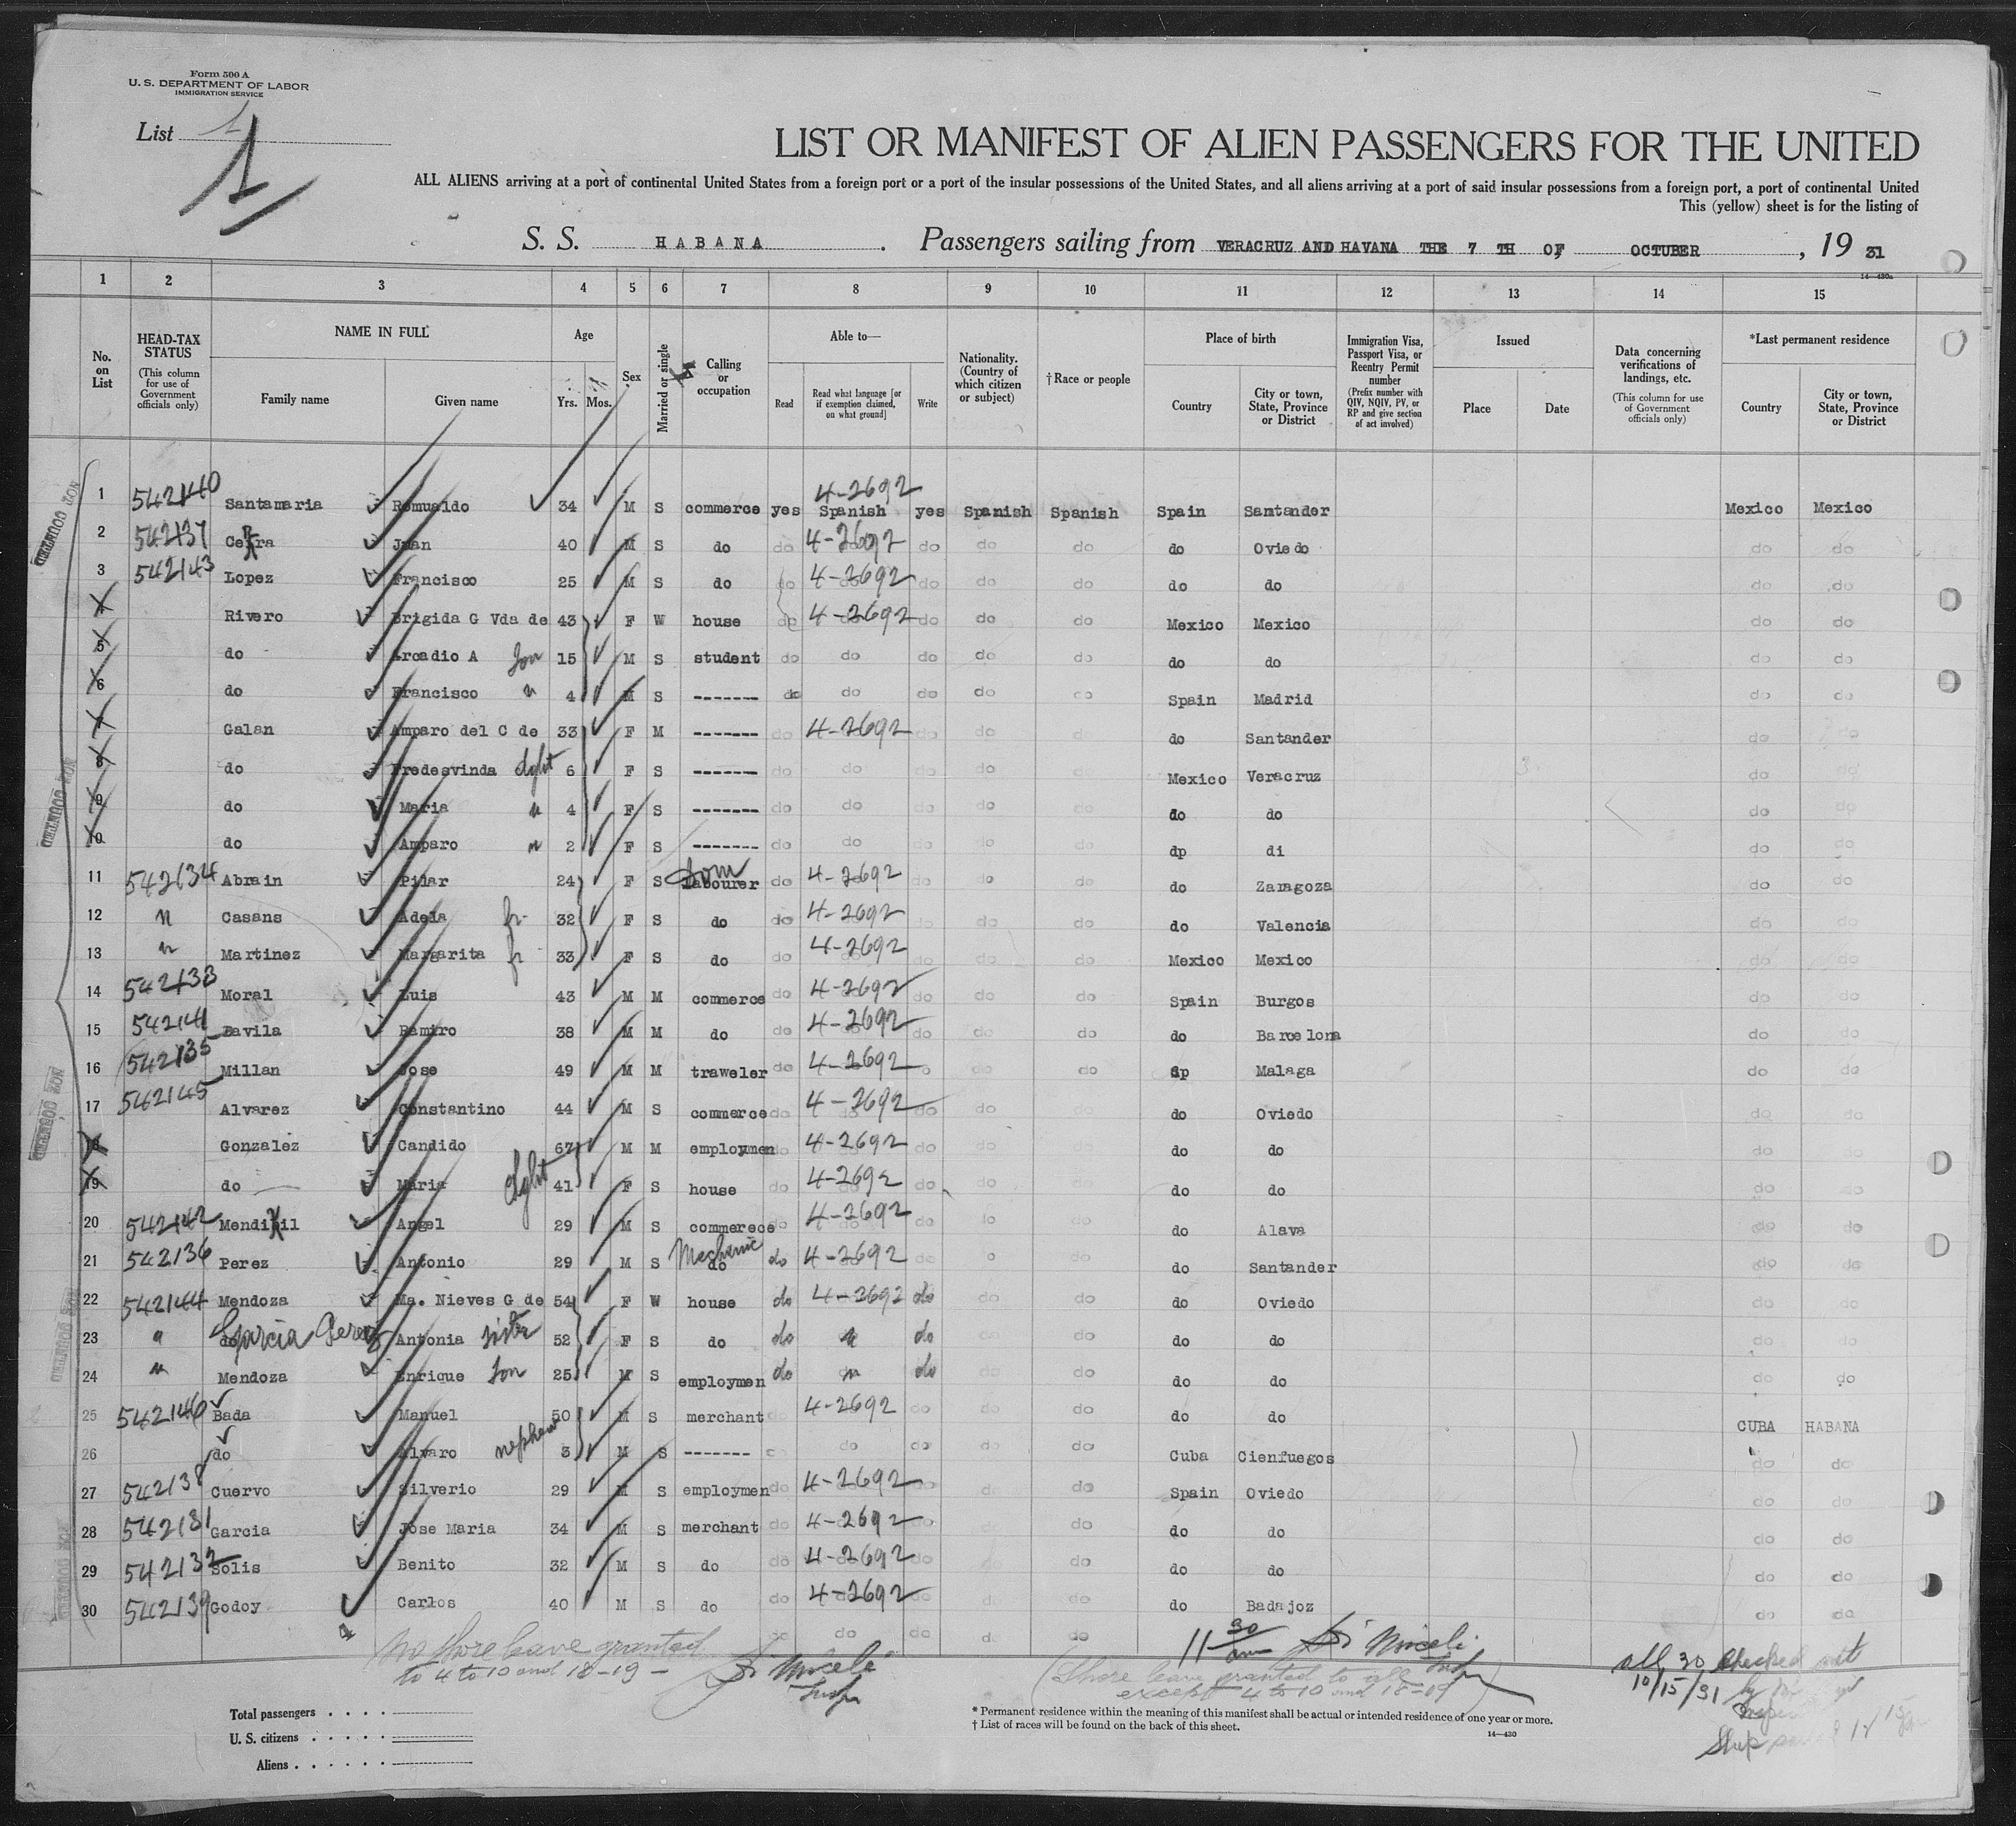 Form 500 A
U. S. DEPARTMENT OF LABOR
IMMIGRATION SERVICE
List 1
1
LIST OR MANIFEST OF ALIEN PASSENGERS FOR THE UNITED
ALL ALIENS arriving at a port of continental United States from a foreign port or a port of the insular possessions of the United States, and all aliens arriving at a port of said insular possessions from a foreign port, a port of continental United
This (yellow) sheet is for the listing of
S. S. HABANA . Passengers sailing from VERACRUZ AND HAVANA THE 7 TH OF, OCTUBER , 19 31
14—430a
1 2 3 4 5 6 7 8 9 10 11 12 13 14 15
No. on List
HEAD-TAX STATUS (This column for use of Government officials only)
NAME IN FULL Family name Given name
Age Yrs. Mos.
Sex
Married or single
Calling or occupation
Able to— Read Read what language [or if exemption claimed, on what ground] Write
Nationality. (Country of which citizen or subject)
†Race or people
Place of birth Country City or town, State, Province or District
Immigration Visa, Passport Visa, or Reentry Permit number (Prefix number with QIV, NQIV, PV, or RP and give section of act involved)
Issued Place Date
Data concerning verifications of landings, etc. (This column for use of Government officials only)
*Last permanent residence Country City or town, State, Province or District
1 542140 Santamaria Romualdo 34 M S commerce yes 4-2692 Spanish yes Spanish Spanish Spain Santander Mexico Mexico
2 542137 Cerra Juan 40 M S do do 4-2692 do do do do Oviedo do do
3 542143 Lopez Francisco 25 M S do do 4-2692 do do do do do do do
4 Rivero Brigida G Vda de 43 F W house do 4-2692 do do do Mexico Mexico do do
5 do Arcadio A Son 15 M S student do do do do do do do do do
6 do Francisco " 4 M S ------- do do do do do Spain Madrid do do
7 Galan Amparo del C de 33 F M ------- do 4-2692 do do do Santander do do
8 do Fredesvinda dght 6 F S ------- do do do do do Mexico Veracruz do do
9 do Maria " 4 F S ------- do do do do do do do do do
10 do Amparo " 2 F S ------- do do do do do dp di do do
11 542134 Abrain Pilar 24 F S Dom labourer do 4-2692 do do do Zaragoza do do
12 " Casans Adela fr 32 F S do do 4-2692 do do do do Valencia do do
13 " Martinez Margarita fr 33 F S do do 4-2692 do do do Mexico Mexico do do
14 542133 Moral Luis 43 M M commerce do 4-2692 do do do Spain Burgos do do
15 542141 Davila Ramiro 38 M M do do 4-2692 do do do do Barcelona do do
16 542135 Millan Jose 49 M M traweler do 4-2692 do do dp Malaga do do
17 542145 Alvarez Constantino 44 M S commerce do 4-2692 do do do Oviedo do do
18 Gonzalez Candido 67 M M employmen do 4-2692 do do do do do do
19 do Maria dght 41 F S house do 4-2692 do do do do do do do
20 542142 Mendixil Angel 29 M S commerece do 4-2692 do do do do Alava do do
21 542136 Perez Antonio 29 M S Mechanic do do 4-2692 do do do Santander do do
22 542144 Mendoza Ma. Nieves G de 54 F W house do 4-2692 do do do do Oviedo do do
23 " do Garcia Perez Antonia sister 52 F S do do " do do do do do do do
24 " Mendoza Enrique Son 25 M S employmen do " do do do do do do do
25 542146 Bada Manuel 50 M S merchant do 4-2692 do do do do do CUBA HABANA
26 do Alvaro nephew 3 M S ------- do do do do Cuba Cienfuegos do do
27 542138 Cuervo Silverio 29 M S employmen do 4-2692 do do do Spain Oviedo do do
28 542131 Garcia Jose Maria 34 M S merchant do 4-2692 do do do do do do
29 542132 Solis Benito 32 M S do do 4-2692 do do do do do do
30 542139 Godoy Carlos 40 M S do do 4-2692 do do do Badajoz do do
do do do
NON QUOTA
No shore leave granted
to 4 to 10 and 18-19 -
Insp
11 30 am
Insp
(Shore leave granted to all
except 4 to 10 and 18-19)
all 30 checked out
10/15/31
Total passengers . . . .
U. S. citizens . . . . .
Aliens . . . . . .
* Permanent residence within the meaning of this manifest shall be actual or intended residence of one year or more.
† List of races will be found on the back of this sheet.
14—430